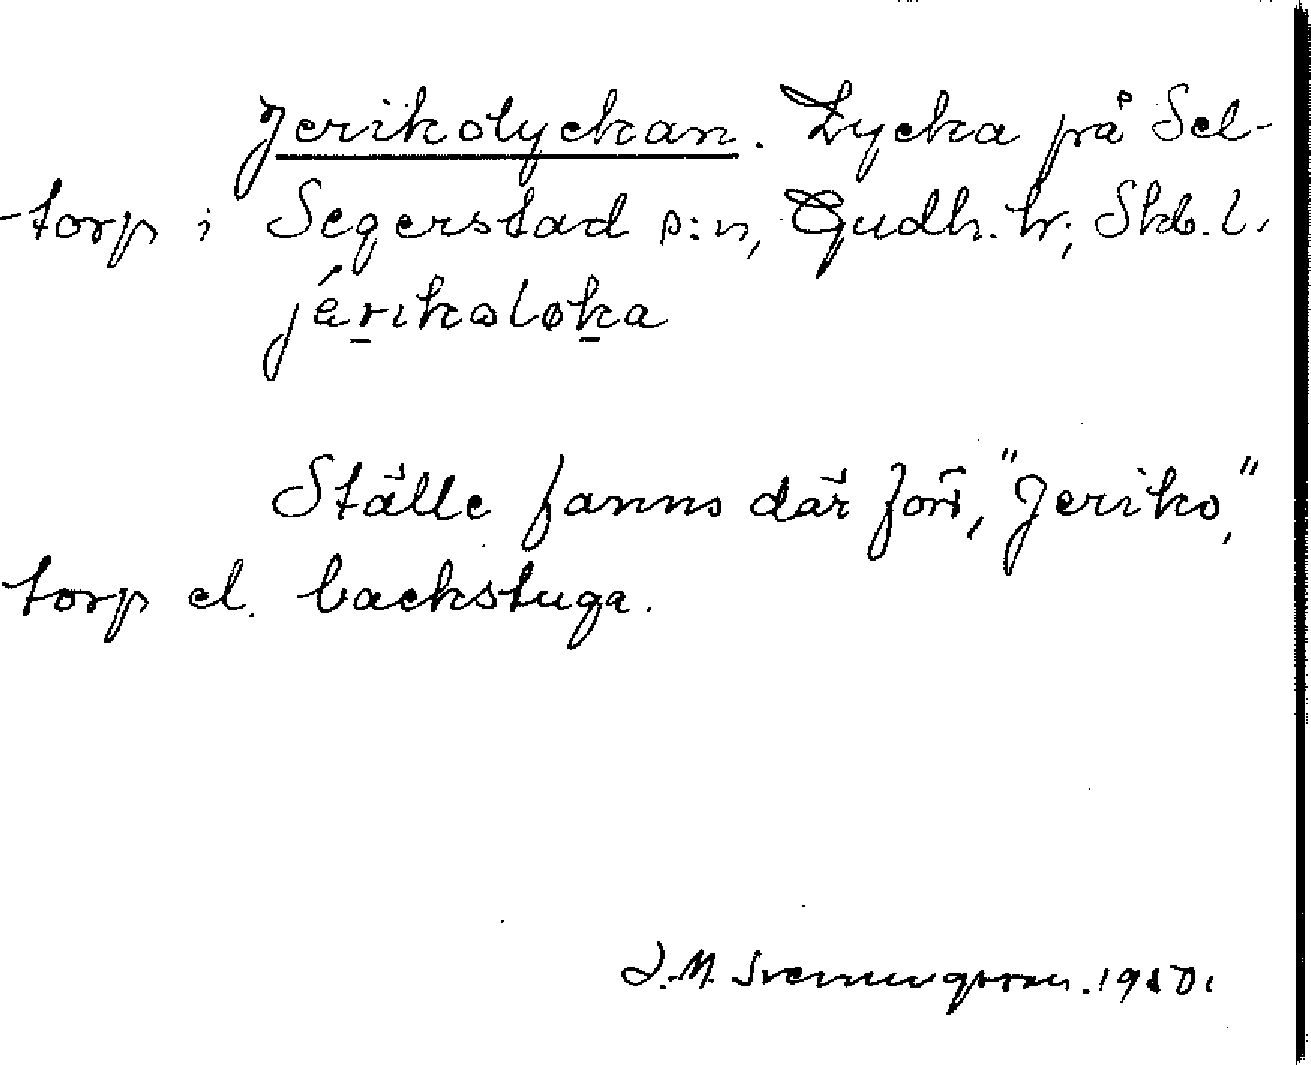 Jerikolyckan. Lycka på Sel-
torp i Segerstad s:n, Gudh. hr; Skb. l.
jä́rikoloka
Ställe fanns där förr, "Jeriko,"
torp el. backstuga.
J. M. Svenningsson. 1950.